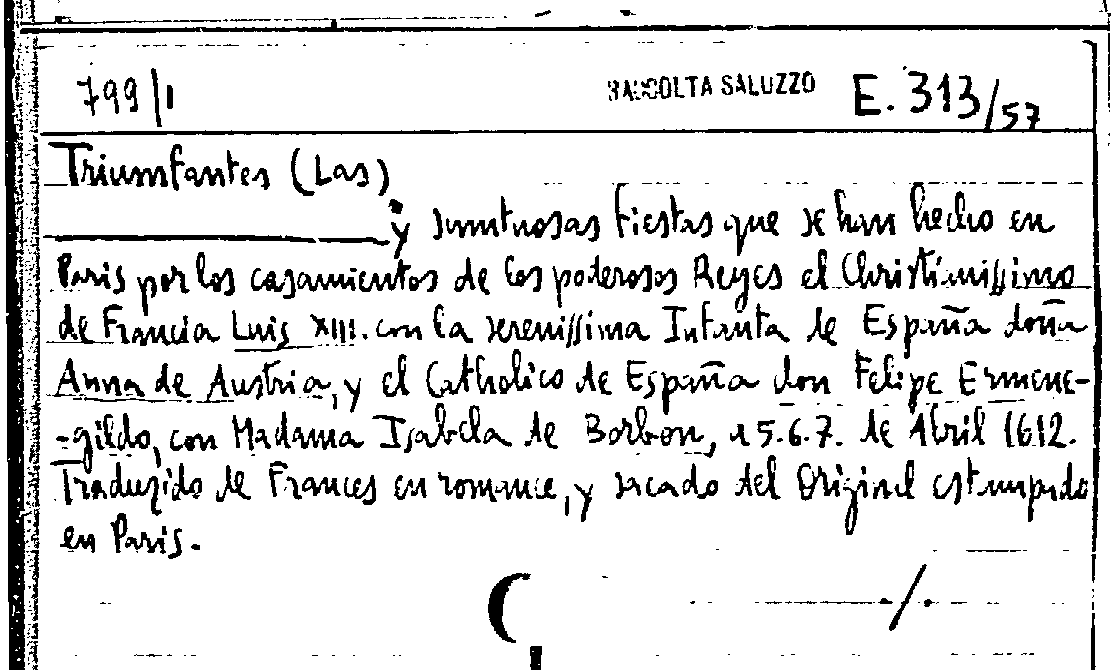 799/1 RACCOLTA SALUZZO E. 313/57
Triumfantes (Las)
y sumtuosas fiestas que se han hecho en
Paris por los casamientos de los poderosos Reyes el Christianissimo
de Francia Luis XIII. con la serenissima Infanta de España doña
Anna de Austria, y el Catholico de España don Felipe Ermene-
-gildo, con Madama Isabela de Borbon, a 5.6.7. de Abril 1612.
Traduzido de Frances en romance, y sacado del Original estampado
en Paris.
./.